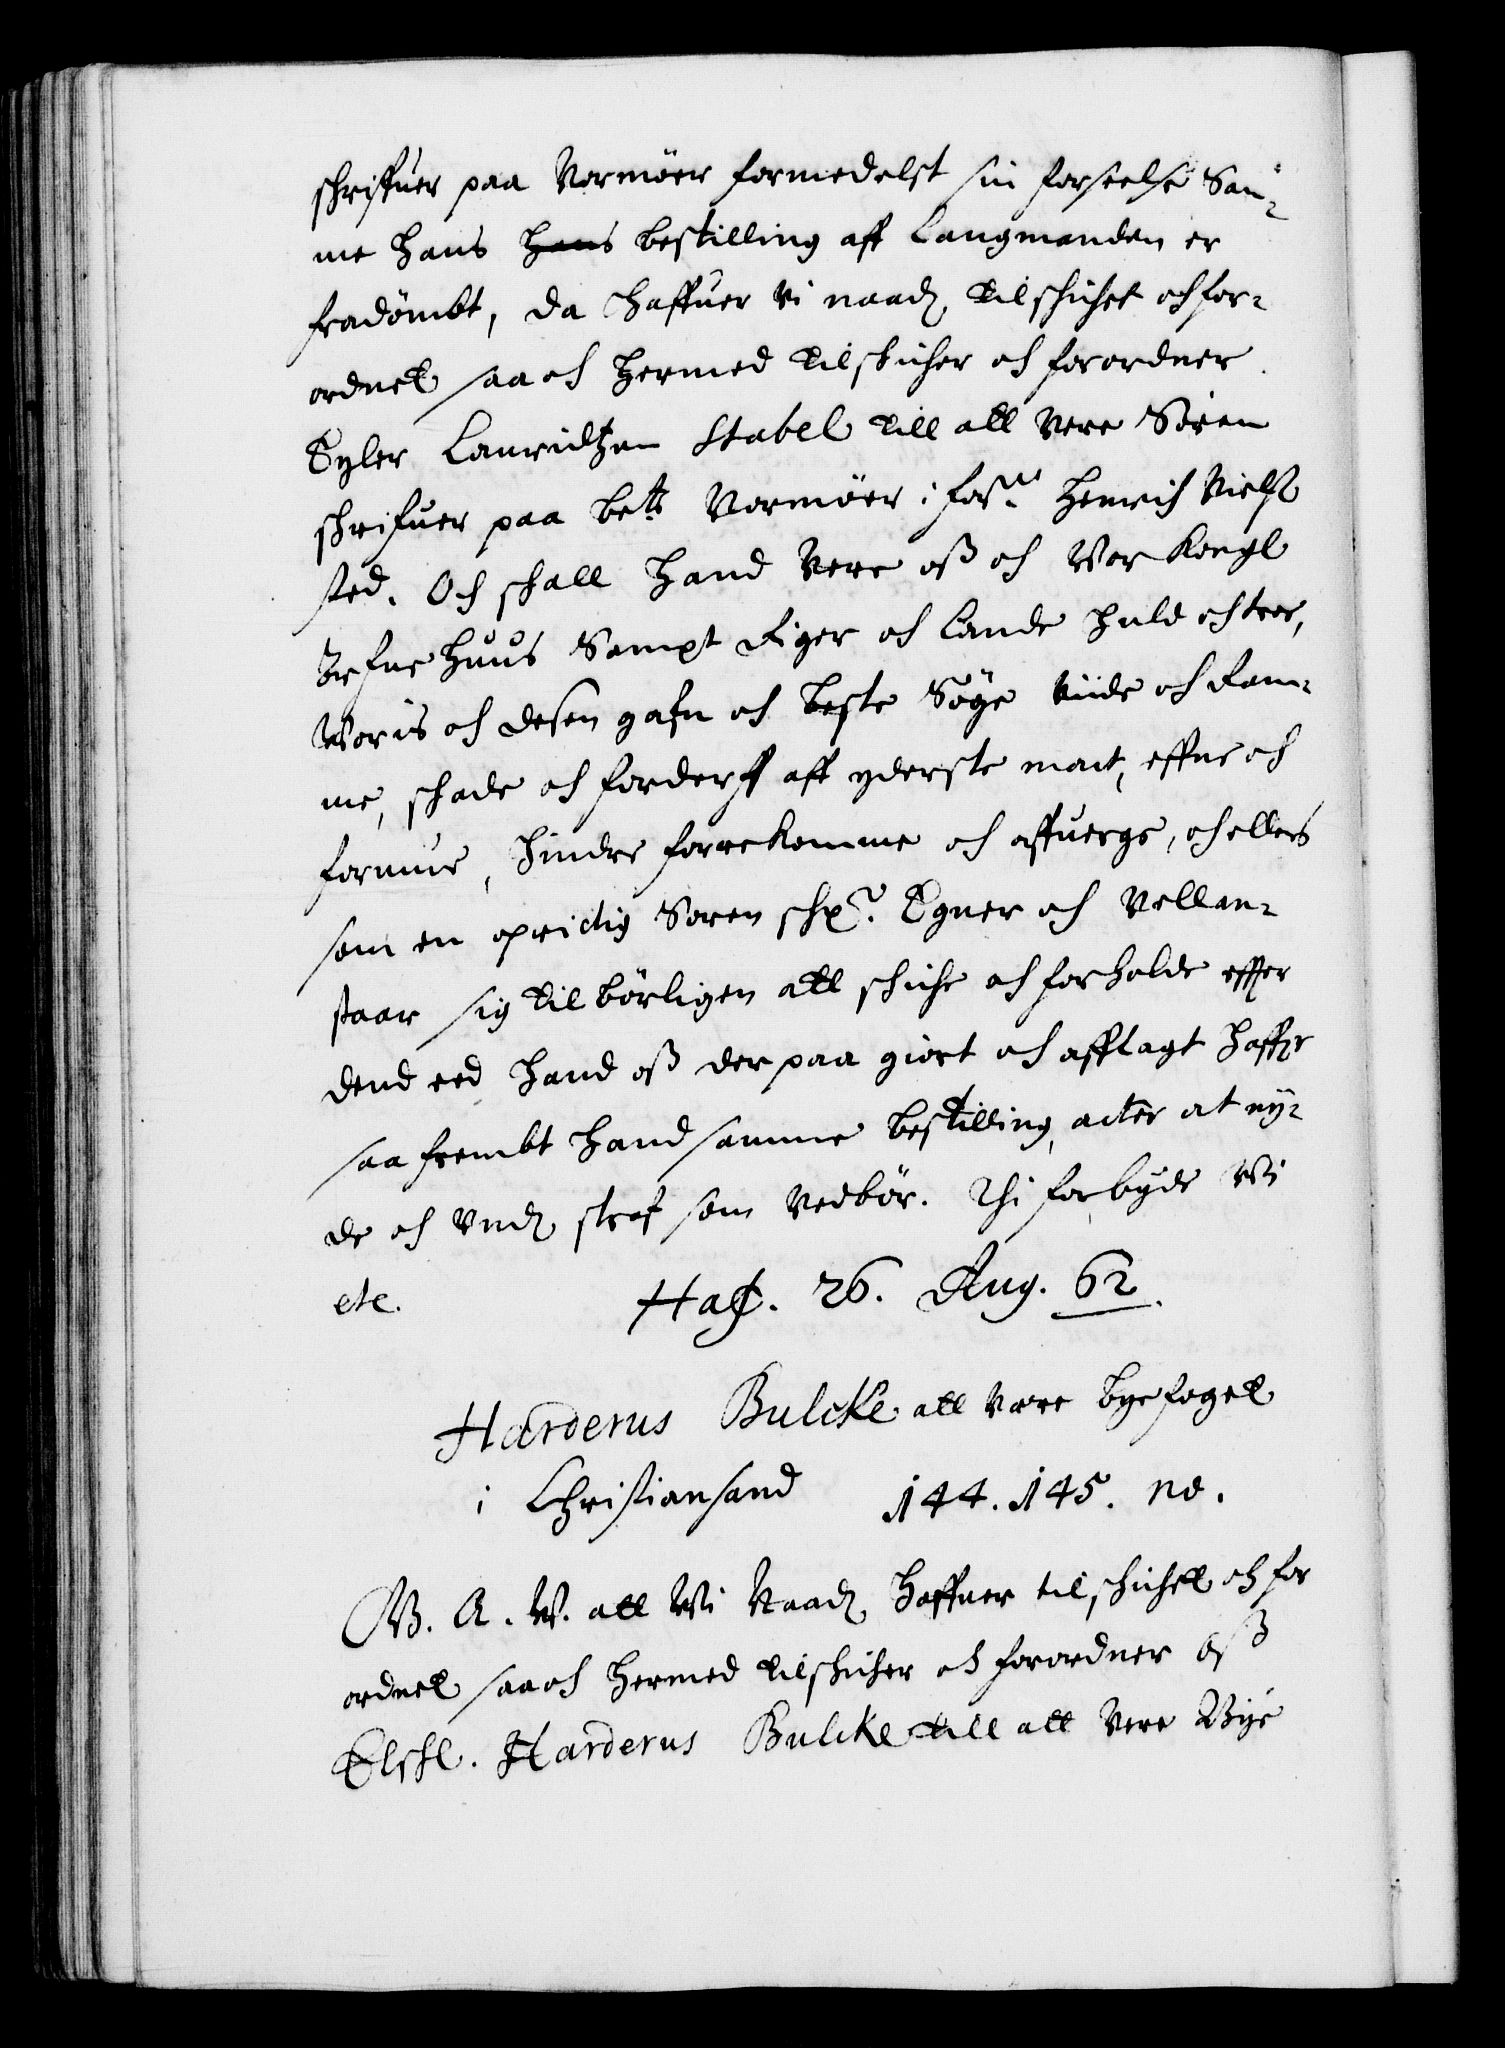 schrifuer paa Normöer formedelst sin forseelse Sam-
me hans hans bestilling aff Laugmanden er
fradömbt, da haffuer Vi naadl tilschichet och for-
ordnet saa och hermed tilskicher och forordner
Eyler Lauridtzen Stabel till att Vere Soren
schrifuer paa bete Normöer i forne Henrich Niels
sted. Och schall hand Vere oß och Vor Kongl
Arfue Huus Sampt Riger och Lande huld och troe,
Woris och desen gafn och beste Söge Viide och Ram-
me, schade och forderff aff yderste mact, effne och
formue, hindre forrekomme och affuerge, och ellers
som en oprictig Soren schr: Egner och Vellan-
staar sig tilbörligen att schiche och forholde effter
dend eed hand oß der paa giort och afflagt haffr
saa frembt hand samme bestilling acter at ny-
de och Vndl straf som Vedbör. Thi forbyde Wi
etc. Haf. 26. Aug. 62.
Harderus Bulcke att Være byefoget
i Christiansand 144. 145. no.
W. A. W. att Wi Naadl haffuer tilschichet och for
ordnet saa och hermed tilschicher och forordner oß
Elschl. Harderus Bulcke till att Vere Bye